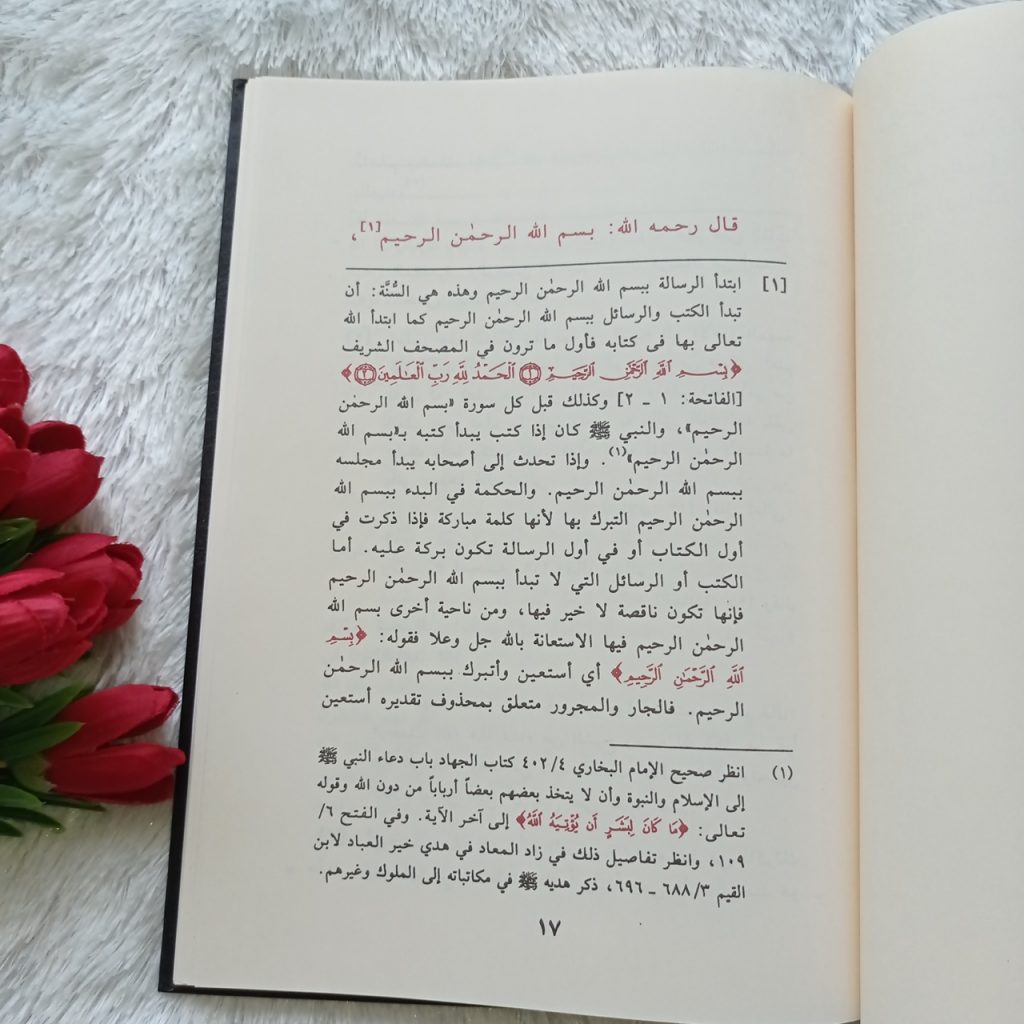 قال رحمه الله: بسم الله الرحمٰن الرحيم[١]،
[١] ابتدأ الرسالة ببسم الله الرحمٰن الرحيم وهذه هي السُّنَّة: أن
تبدأ الكتب والرسائل ببسم الله الرحمٰن الرحيم كما ابتدأ الله
تعالى بها فى كتابه فأول ما ترون في المصحف الشريف
﴿بِسْمِ ٱللَّهِ ٱلرَّحْمَٰنِ ٱلرَّحِيمِ ۝١ ٱلْحَمْدُ لِلَّهِ رَبِّ ٱلْعَٰلَمِينَ ۝٢﴾
[الفاتحة: ١ ـ ٢] وكذلك قبل كل سورة «بسم الله الرحمٰن
الرحيم»، والنبي ﷺ كان إذا كتب يبدأ كتبه بـ«بسم الله
الرحمٰن الرحيم»(١). وإذا تحدث إلى أصحابه يبدأ مجلسه
ببسم الله الرحمٰن الرحيم. والحكمة في البدء ببسم الله
الرحمٰن الرحيم التبرك بها لأنها كلمة مباركة فإذا ذكرت في
أول الكتاب أو في أول الرسالة تكون بركة عليه. أما
الكتب أو الرسائل التي لا تبدأ ببسم الله الرحمٰن الرحيم
فإنها تكون ناقصة لا خير فيها، ومن ناحية أخرى بسم الله
الرحمٰن الرحيم فيها الاستعانة بالله جل وعلا فقوله: ﴿بِسْمِ
ٱللَّهِ ٱلرَّحْمَٰنِ ٱلرَّحِيمِ﴾ أي أستعين وأتبرك ببسم الله الرحمٰن
الرحيم. فالجار والمجرور متعلق بمحذوف تقديره أستعين
(١) انظر صحيح الإمام البخاري ٤٠٢/٤ كتاب الجهاد باب دعاء النبي ﷺ
إلى الإسلام والنبوة وأن لا يتخذ بعضهم بعضاً أرباباً من دون الله وقوله
تعالى: ﴿مَا كَانَ لِبَشَرٍ أَن يُؤْتِيَهُ ٱللَّهُ﴾ إلى آخر الآية. وفي الفتح ٦/
١٠٩، وانظر تفاصيل ذلك في زاد المعاد في هدي خير العباد لابن
القيم ٦٨٨/٣ ـ ٦٩٦، ذكر هديه ﷺ في مكاتباته إلى الملوك وغيرهم.
١٧